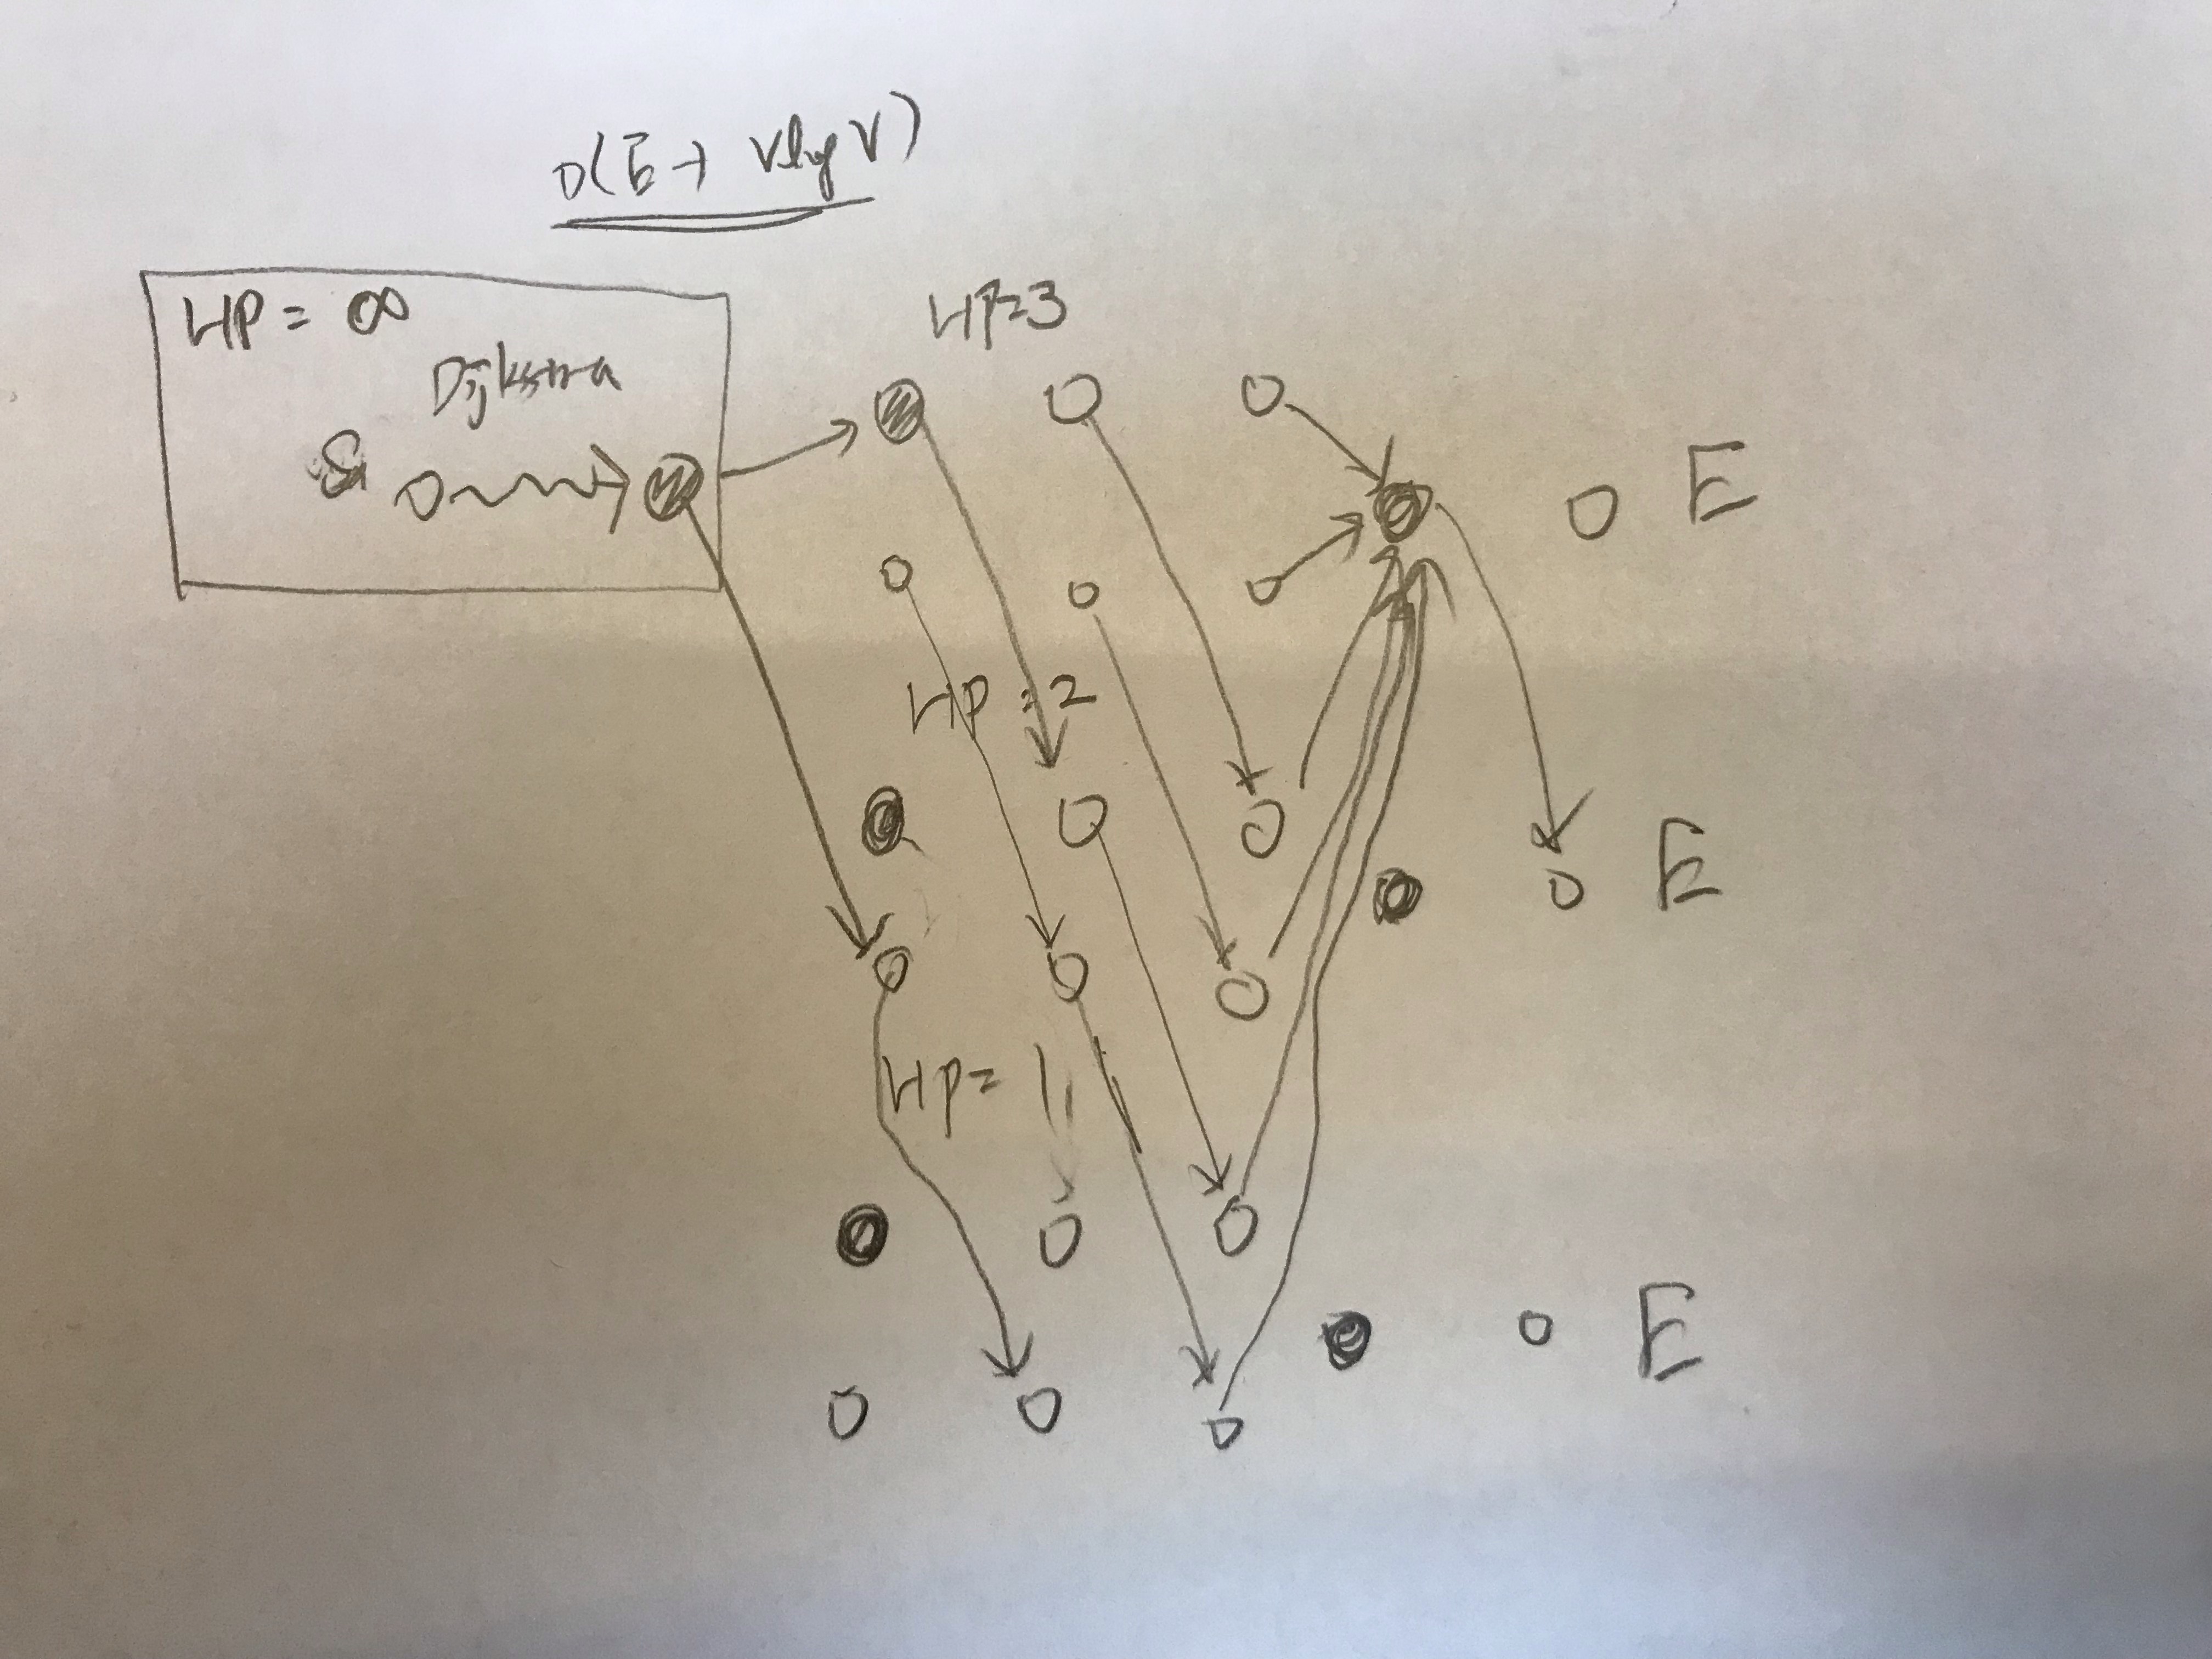 O(E + VlgV)
HP = ∞
Dijkstra
S
HP=3
HP=2
HP=1